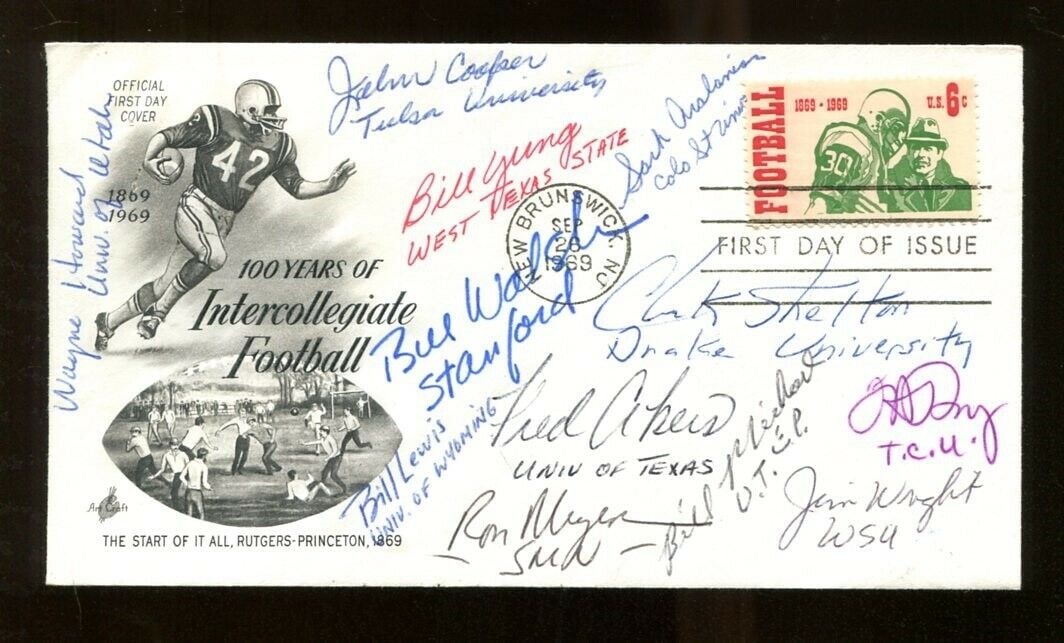 OFFICIAL
FIRST DAY
COVER
42
1869
1969
100 YEARS OF
Intercollegiate
Football
Art Craft
THE START OF IT ALL, RUTGERS-PRINCETON, 1869
Wayne Howard
Univ. of Utah
John Cooper
Tulsa University
Bill Yung
WEST TEXAS STATE
Sark Arslanian
Colo St Univ
NEW BRUNSWICK, NJ
SEP
26
1969
FOOTBALL
1869 • 1969
U.S. 6c
30
FIRST DAY OF ISSUE
Bill Walsh
Stanford
Chuck Shelton
Drake University
Bill Lewis
UNIV. OF WYOMING
Fred Akers
UNIV OF TEXAS
Bill Michael
U.T.E.P.
T.C.U.
Ron Meyer
SMU
Jim Wright
WSU